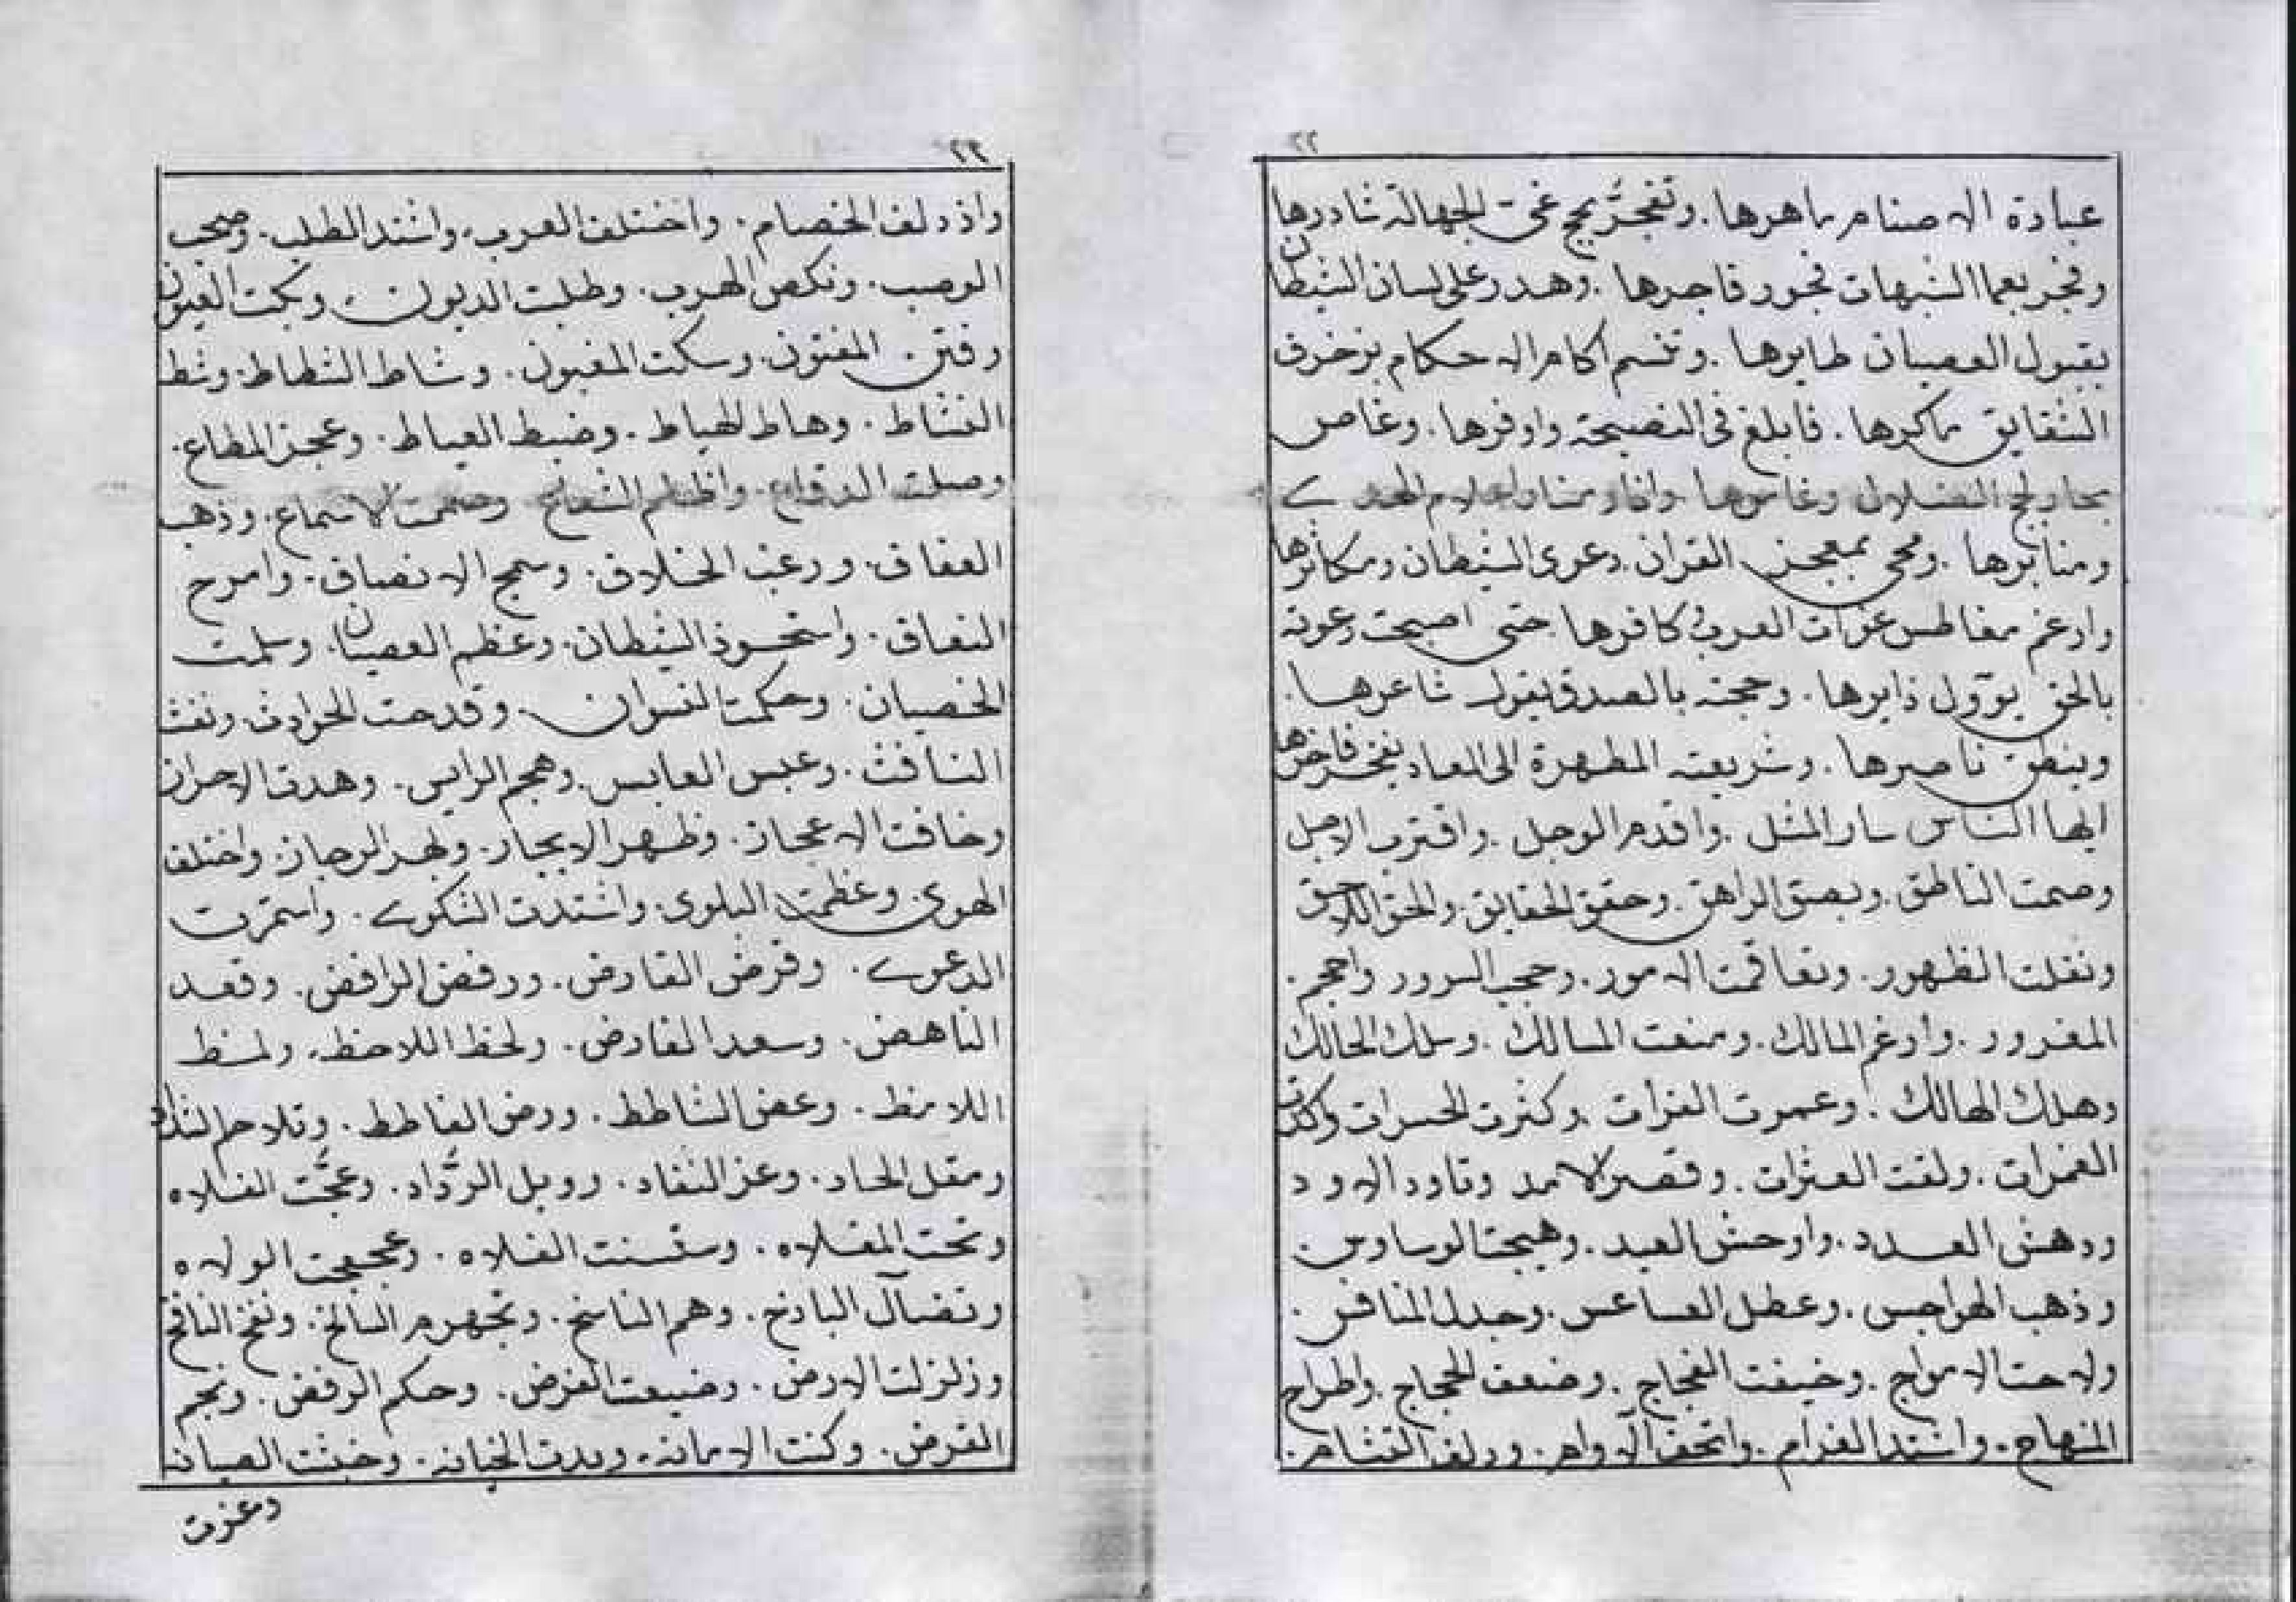 ٢٢
عبادة الاصنام ماهرها. وتفجر الجهالة شادرها
وفجر بعما الشبهات فجور فاجرها. وهدر على لسان الشيطان
بقبول العصيان طايرها. وتنسم اكام الاحكام بزخرف
الشقايق ماكرها. فابلغ فى النصيحة واوفرها. وغاص
بحار لجج الضلال وغامرها وانار منار اعلام
ومنابرها. ومحى بمعجز القران دعوى الشيطان ومكاثرها
وارغم معاطس العرب كافرها. حتى اصبحت دعوته
بالحق يوول زايرها. وحجته بالصدق يقول شاعرها.
وينطق ناصرها. وشريعته المطهرة الى المعاد يفخر فاخرها
ايها الناس سار المثل. واقدم الوجل. واقترب الاجل
وصمت الناطق. وبصق الزاهق. وحقق الحقايق. والحق اللاحق
وثقلت الظهور. وتفاقمت الامور. وحجب السرور واحجم.
المغرور. وارغم المالك. ومنعت المسالك. وسلك الحالك
وهلك الهالك. وعمرت الفرات. وكثرت الحسرات وكدت
الغمرات. ولقت العثرات. وقصر الامد وتاود الاود
ودهش العدد. واوحش العيد. وهيجت الوساوس.
وذهب الهواجس. وعطل العساعس. وجدل المنافس.
ولاحت الامواج. وخيفت الفجاج. وضعف الحجاج. واطراح
المنهاج. واشتد الغرام. والاوام. ودلف القشام.
٢٣
واذ دلف الخصام. واختلف العرب. واشتد الطلب. وصحب
الوصب. ونكص الهرب. وطلبت الديون. وبكت العيون
وفتن المفتون. وسكت المغبون. وشاط الشطاط. وشط
النشاط. وهاط الهياط. وضبط العياط. وعجز المطاع.
وصلت الدفاع. واظلم الشعاع. وصمت الاسماع. وذهب
العفاف. ورغب الخلاف. وسمج الانصاف. وامرج
النعاف. واستحوذ الشيطان. وعظم العصيان. وسلمت
الخصيان. وحكمت النسوان. وقدحت الحوادث. ونفث
النافث. وعبس العابس. وهجم الرايس. وهدت الاحراز
وخافت الاعجاز. وظهر الايجاز. وبهر الرجاز. واختلف
الهوى. وعظمت البلوى. واشتدت الشكوى. واستمرت
الدعوى. وقرض القارض. ورفض الرافض. وقعد
الناهض. وسعد الفارض. ولحظ اللاحظ. ولمظ
اللامظ. وعض الشاطط. ورض الغاطط. وتلاحم الشداد
ومقل الحاد. وعز النفاد. ووبل الرُّداد. وعجَّت الفلاه
وتحت المقلاه. وسقنت الفلاه. وعجعجت الولاه
وتضآل الباذخ. وهم الناسخ. وتجهرم السالخ. ونفخ النافخ
وزلزلت الارض. وضيعت الفرض. وحكم الرفض. ونجم
القرض. وكنت الامانه. وبدت الخيانه. وخبثت الصيانه
وعزت